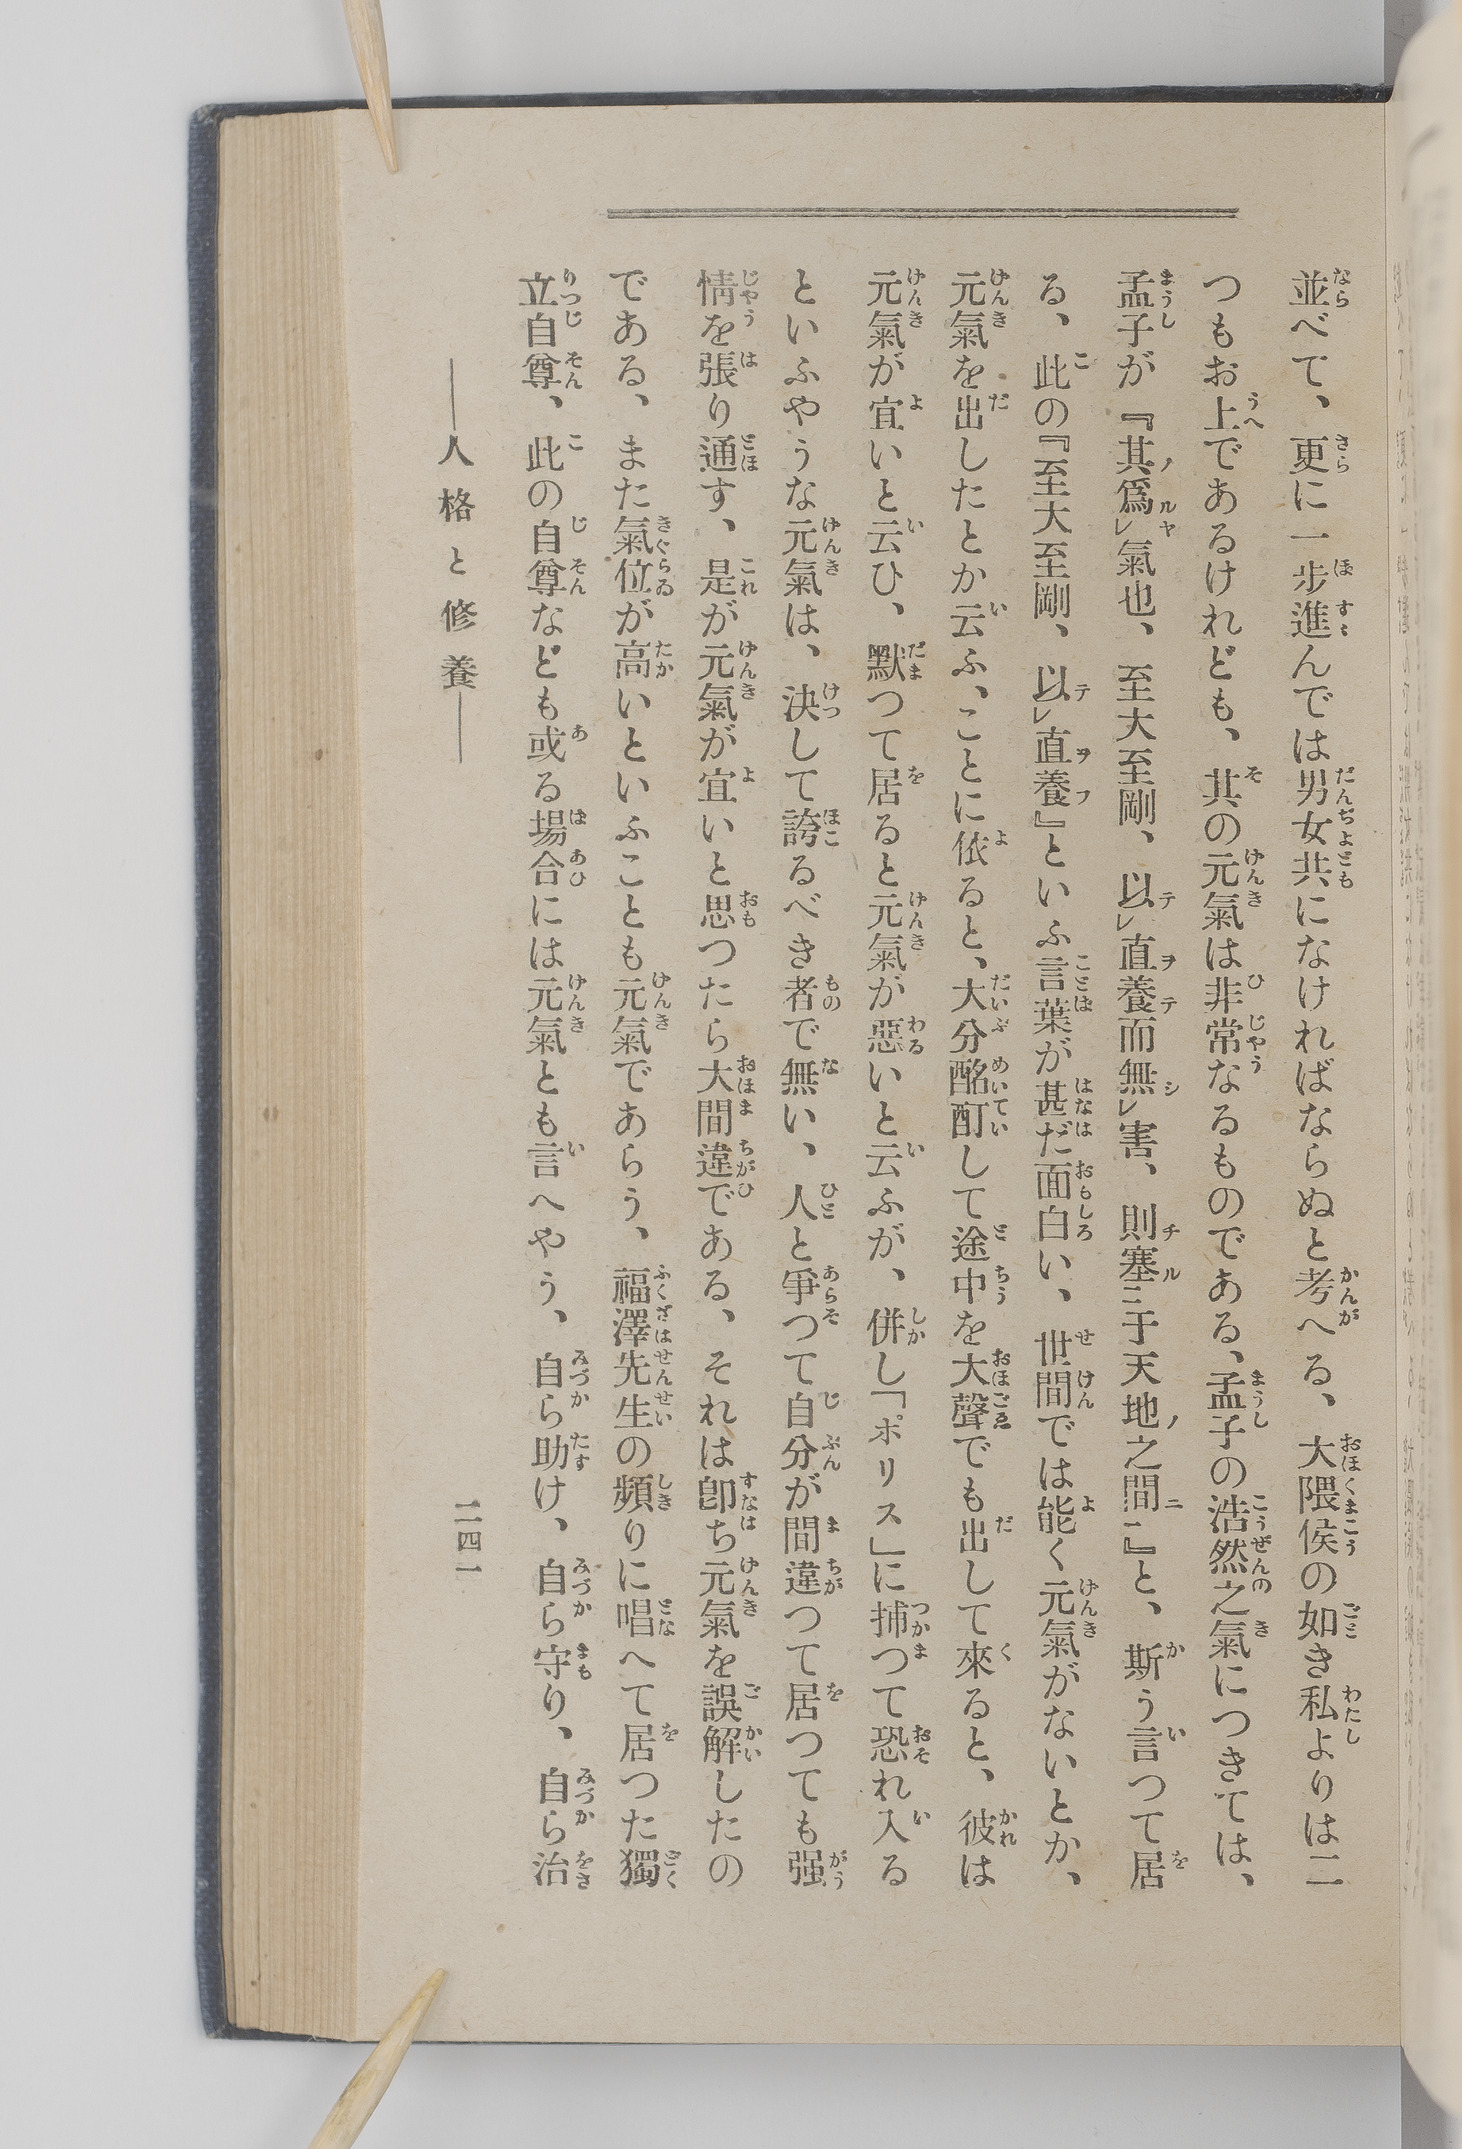 並べて、更に一步進んでは男女共になければならぬと考へる、大隈侯の如き私よりは二
つもお上であるけれども、其の元氣は非常なるものである、孟子の浩然之氣につきては、
孟子が『其爲レ氣也、至大至剛、以レ直養而無レ害、則塞ニ于天地之間ニ』と、斯う言つて居
る、此の『至大至剛、以レ直養』といふ言葉が甚だ面白い、世間では能く元氣がないとか、
元氣を出したとか云ふ、ことに依ると、大分酩酊して途中を大聲でも出して來ると、彼は
元氣が宜いと云ひ、默つて居ると元氣が惡いと云ふが、併し「ポリス」に捕つて恐れ入る
といふやうな元氣は、決して誇るべき者で無い、人と爭つて自分が間違つて居つても强
情を張り通す、是が元氣が宜いと思つたら大間違である、それは卽ち元氣を誤解したの
である、また氣位が高いといふことも元氣であらう、福澤先生の頻りに唱へて居つた獨
立自尊、此の自尊なども或る場合には元氣とも言へやう、自ら助け、自ら守り、自ら治
――人格と修養――
二四一